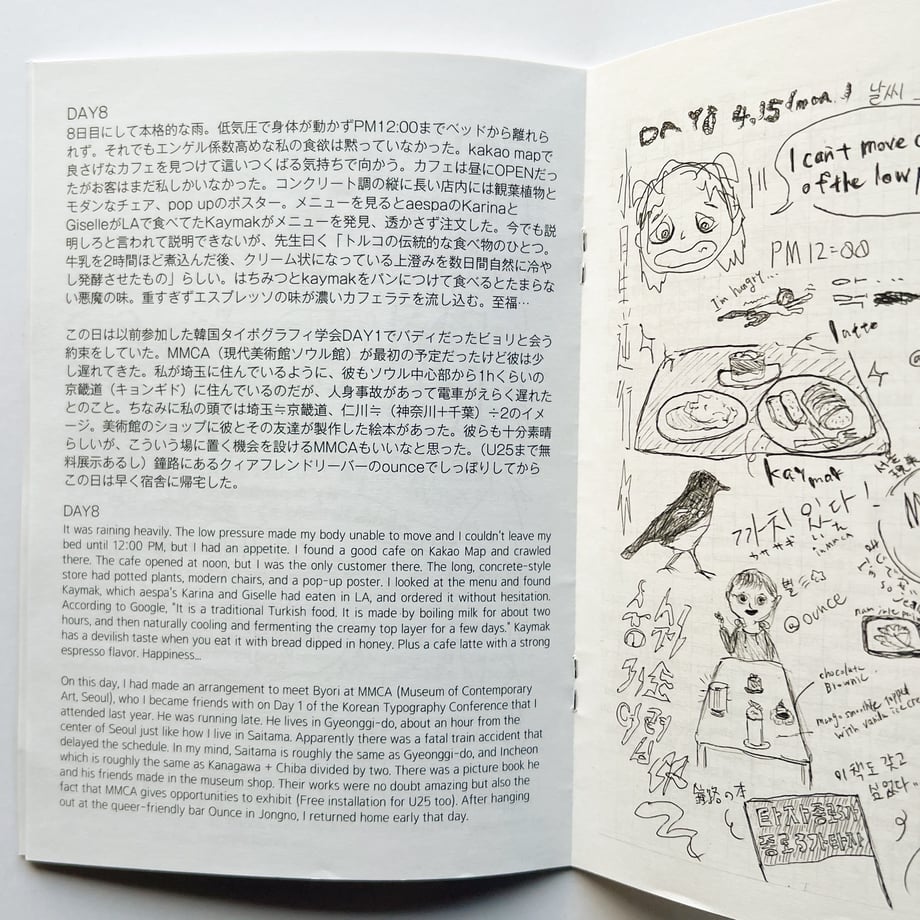 DAY8
8日目にして本格的な雨。低気圧で身体が動かずPM12:00までベッドから離れら
れず。それでもエンゲル係数高めな私の食欲は黙っていなかった。kakao mapで
良さげなカフェを見つけて這いつくばる気持ちで向かう。カフェは昼にOPENだっ
たがお客はまだ私しかいなかった。コンクリート調の縦に長い店内には観葉植物と
モダンなチェア、pop upのポスター。メニューを見るとaespaのKarinaと
GiselleがLAで食べてたKaymakがメニューを発見、透かさず注文した。今でも説
明しろと言われて説明できないが、先生曰く「トルコの伝統的な食べ物のひとつ。
牛乳を2時間ほど煮込んだ後、クリーム状になっている上澄みを数日間自然に冷や
し発酵させたもの」らしい。はちみつとkaymakをパンにつけて食べるとたまらな
い悪魔の味。重すぎずエスプレッソの味が濃いカフェラテを流し込む。至福…
この日は以前参加した韓国タイポグラフィ学会DAY1でバディだったビョリと会う
約束をしていた。MMCA（現代美術館ソウル館）が最初の予定だったけど彼は少
し遅れてきた。私が埼玉に住んでいるように、彼もソウル中心部から1hくらいの
京畿道（キョンギド）に住んでいるのだが、人身事故があって電車がえらく遅れた
とのこと。ちなみに私の頭では埼玉≒京畿道、仁川≒（神奈川+千葉）÷2のイメ
ージ。美術館のショップに彼とその友達が製作した絵本があった。彼らも十分素晴
らしいが、こういう場に置く機会を設けるMMCAもいいなと思った。（U25まで無
料展示あるし）鐘路にあるクィアフレンドリーバーのounceでしっぽりしてから
この日は早く宿舎に帰宅した。
DAY8
It was raining heavily. The low pressure made my body unable to move and I couldn't leave my
bed until 12:00 PM, but I had an appetite. I found a good cafe on Kakao Map and crawled
there. The cafe opened at noon, but I was the only customer there. The long, concrete-style
store had potted plants, modern chairs, and a pop-up poster. I looked at the menu and found
Kaymak, which aespa's Karina and Giselle had eaten in LA, and ordered it without hesitation.
According to Google, "It is a traditional Turkish food. It is made by boiling milk for about two
hours, and then naturally cooling and fermenting the creamy top layer for a few days." Kaymak
has a devilish taste when you eat it with bread dipped in honey. Plus a cafe latte with a strong
espresso flavor. Happiness...
On this day, I had made an arrangement to meet Byori at MMCA (Museum of Contemporary
Art, Seoul), who I became friends with on Day 1 of the Korean Typography Conference that I
attended last year. He was running late. He lives in Gyeonggi-do, about an hour from the
center of Seoul just like how I live in Saitama. Apparently there was a fatal train accident that
delayed the schedule. In my mind, Saitama is roughly the same as Gyeonggi-do, and Incheon
which is roughly the same as Kanagawa + Chiba divided by two. There was a picture book he
and his friends made in the museum shop. Their works were no doubt amazing but also the
fact that MMCA gives opportunities to exhibit (Free installation for U25 too). After hanging
out at the queer-friendly bar Ounce in Jongno, I returned home early that day.
DAY8 4.15 (mon.) 날씨
I can't move
of the low
PM 12:00
I'm hungry...
latte
kaymak
까치 있다!
カササギ
in MMCA
별
@ounce
chocolate
Brownie
mango smoothie topped
with vanila icecream
이 책도 갖고
싶었다
鐘路の本
타자종로3가
종로3가타자